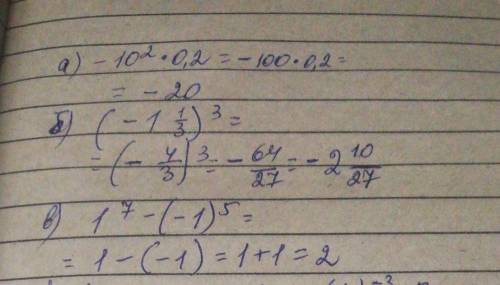 а) - 10² · 0,2 = - 100 · 0,2 =
= - 20
б) (- 1 1/3)³ =
= (- 4/3)³ = - 64/27 = - 2 10/27
в) 1⁷ - (-1)⁵ =
= 1 - (-1) = 1 + 1 = 2